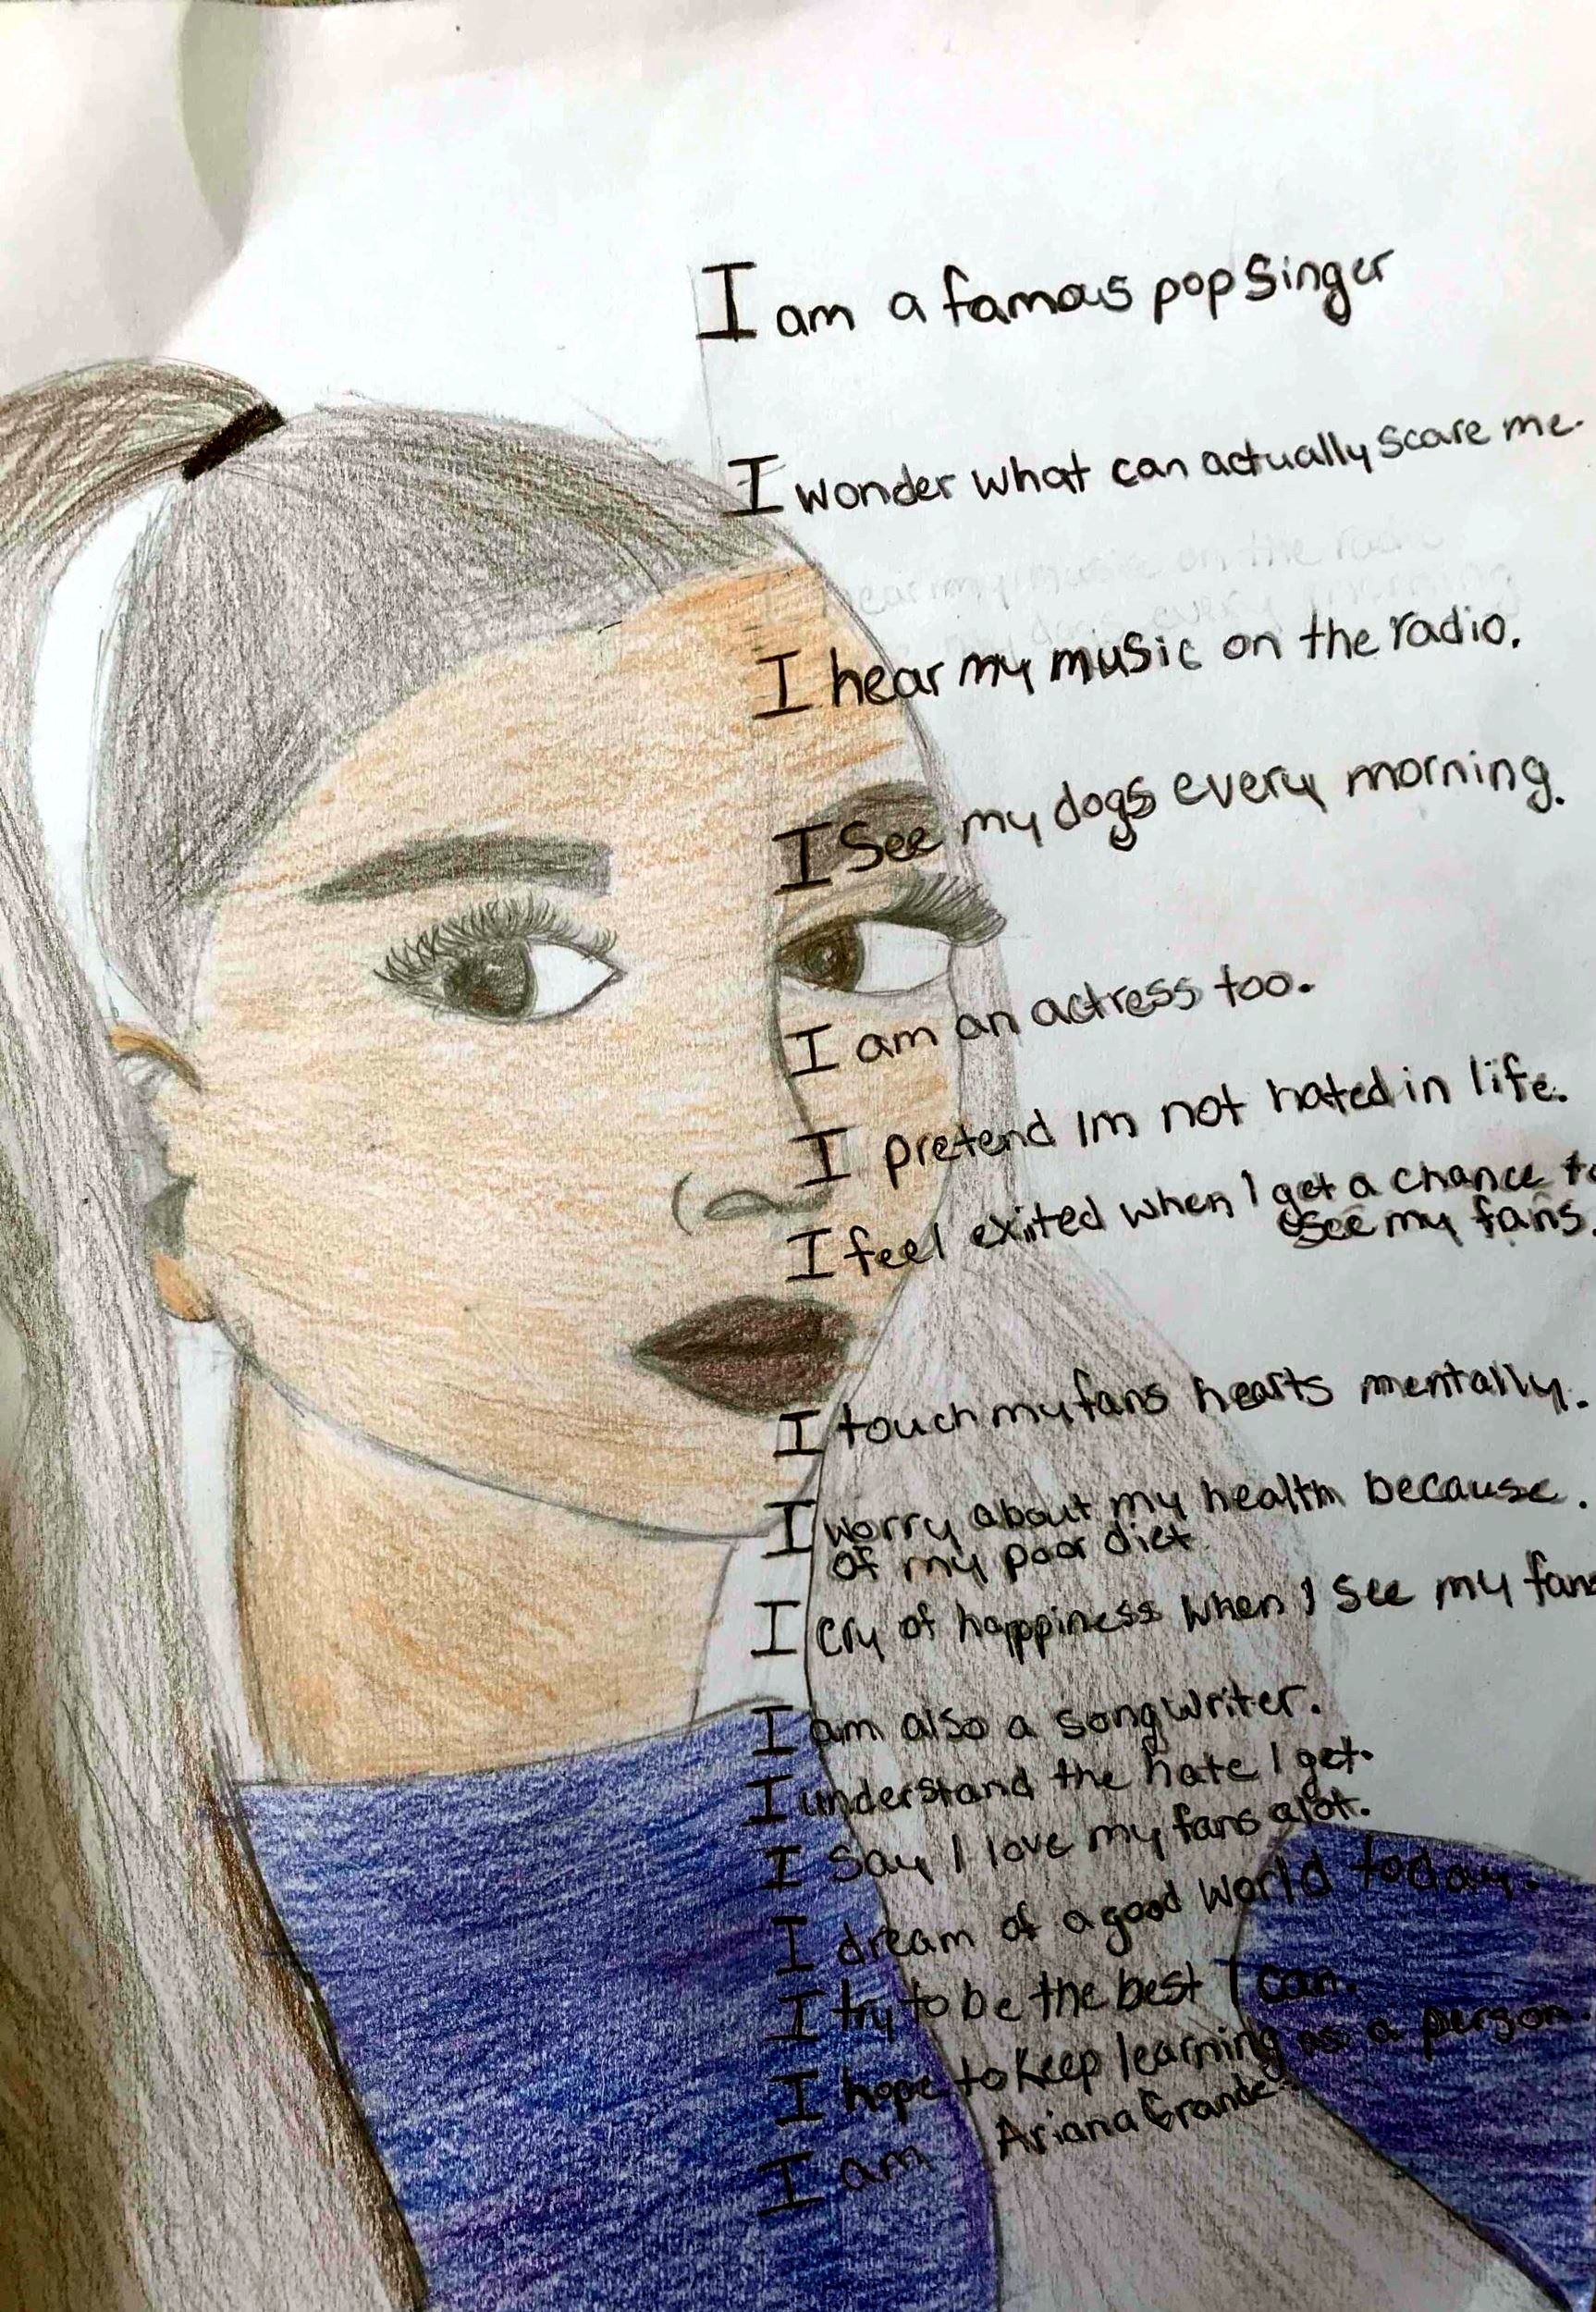 I am a famous pop singer
I wonder what can actually scare me.
I hear my music on the radio.
I see my dogs every morning.
I am an actress too.
I pretend Im not hated in life.
I feel exited when I get a chance to
see my fans.
I touch my fans hearts mentally.
I worry about my health because.
of my poor diet.
I cry of happiness when I see my fans
I am also a songwriter.
I understand the hate I get.
I say I love my fans alot.
I dream of a good world today.
I try to be the best I can.
I hope to keep learning as a person.
I am Ariana Grande